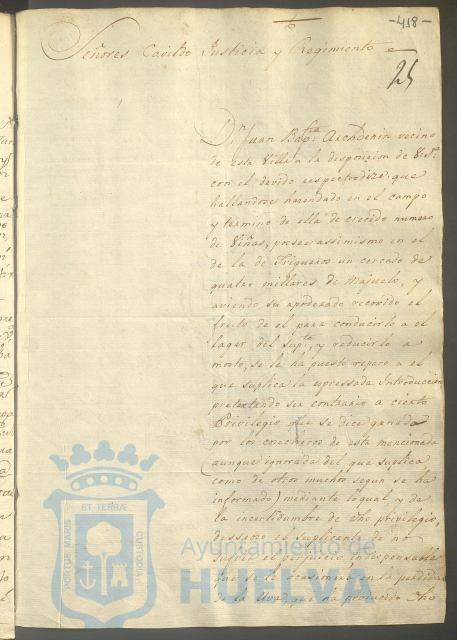 -418-
Señores Cavildo Justicia y Regimiento
25
Dn. Juan Bapta. vecino
de esta Villa a la disposicion de
con el devido respecto dize, que
hallandose hazendado en el campo
y termino de ella de crecido numero
de Viñas, posee assimismo en el
de la de Trigueros un cercado de
quatro millares de Majuelo, y
aviendo su apoderado recojido el
fruto de el para conducirlo a el
lagar del supte. y reducirlo a
mosto, se le ha puesto reparo a el
que suplica la expressada Introduccion
pretextando ser contrario a cierto
Privilegio que se dice ganado
por los cosecheros de esta mencionada
(aunque ignorada del que suplica
como de otros muchos segun se ha
informado) mediante lo qual y de
la incertidumbre de dho privilegio,
desseando el suplicante de no
sufrir el perjuicio indispensable
que se le ocasiona en la perdida
de la Uva, que ha producido dho
PORTUS MARIS ET TERRÆ CUSTODIA
Ayuntamiento de
HUELVA